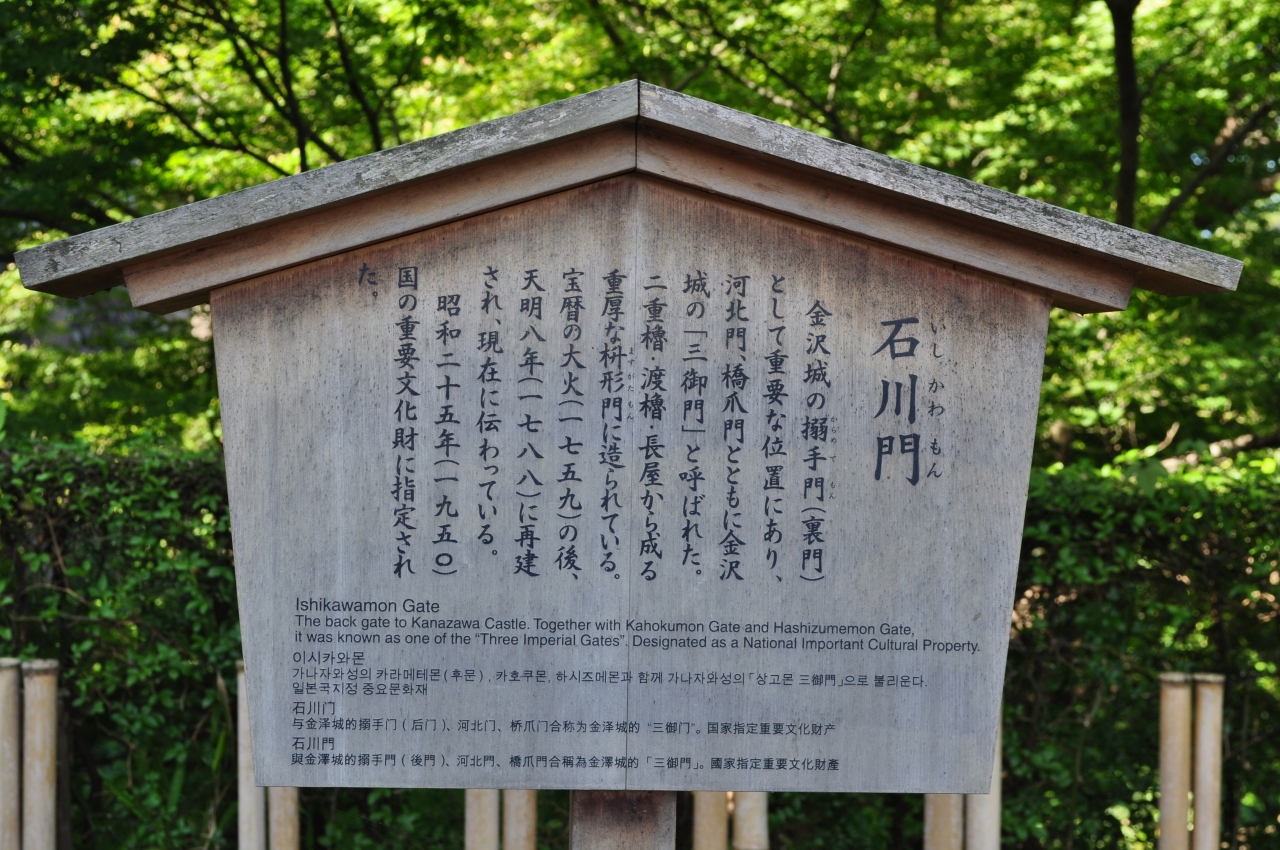 石川門
いしかわもん
金沢城の搦手門(裏門)
からめてもん
として重要な位置にあり、
河北門、橋爪門とともに金沢
城の「三御門」と呼ばれた。
二重櫓・渡櫓・長屋から成る
重厚な枡形門に造られている。
ますがたもん
宝暦の大火(一七五九)の後、
天明八年(一七八八)に再建
され、現在に伝わっている。
昭和二十五年(一九五〇)
国の重要文化財に指定され
た。
Ishikawamon Gate
The back gate to Kanazawa Castle. Together with Kahokumon Gate and Hashizumemon Gate,
it was known as one of the "Three Imperial Gates". Designated as a National Important Cultural Property.
이시카와몬
가나자와성의 카라메테몬(후문) , 카호쿠몬, 하시즈메몬과 함께 가나자와성의「상고몬 三御門」으로 불리운다.
일본국지정 중요문화재
石川门
与金泽城的搦手门（后门）、河北门、桥爪门合称为金泽城的 "三御门"。国家指定重要文化财产
石川門
與金澤城的搦手門（後門）、河北門、橋爪門合稱為金澤城的「三御門」。國家指定重要文化財產